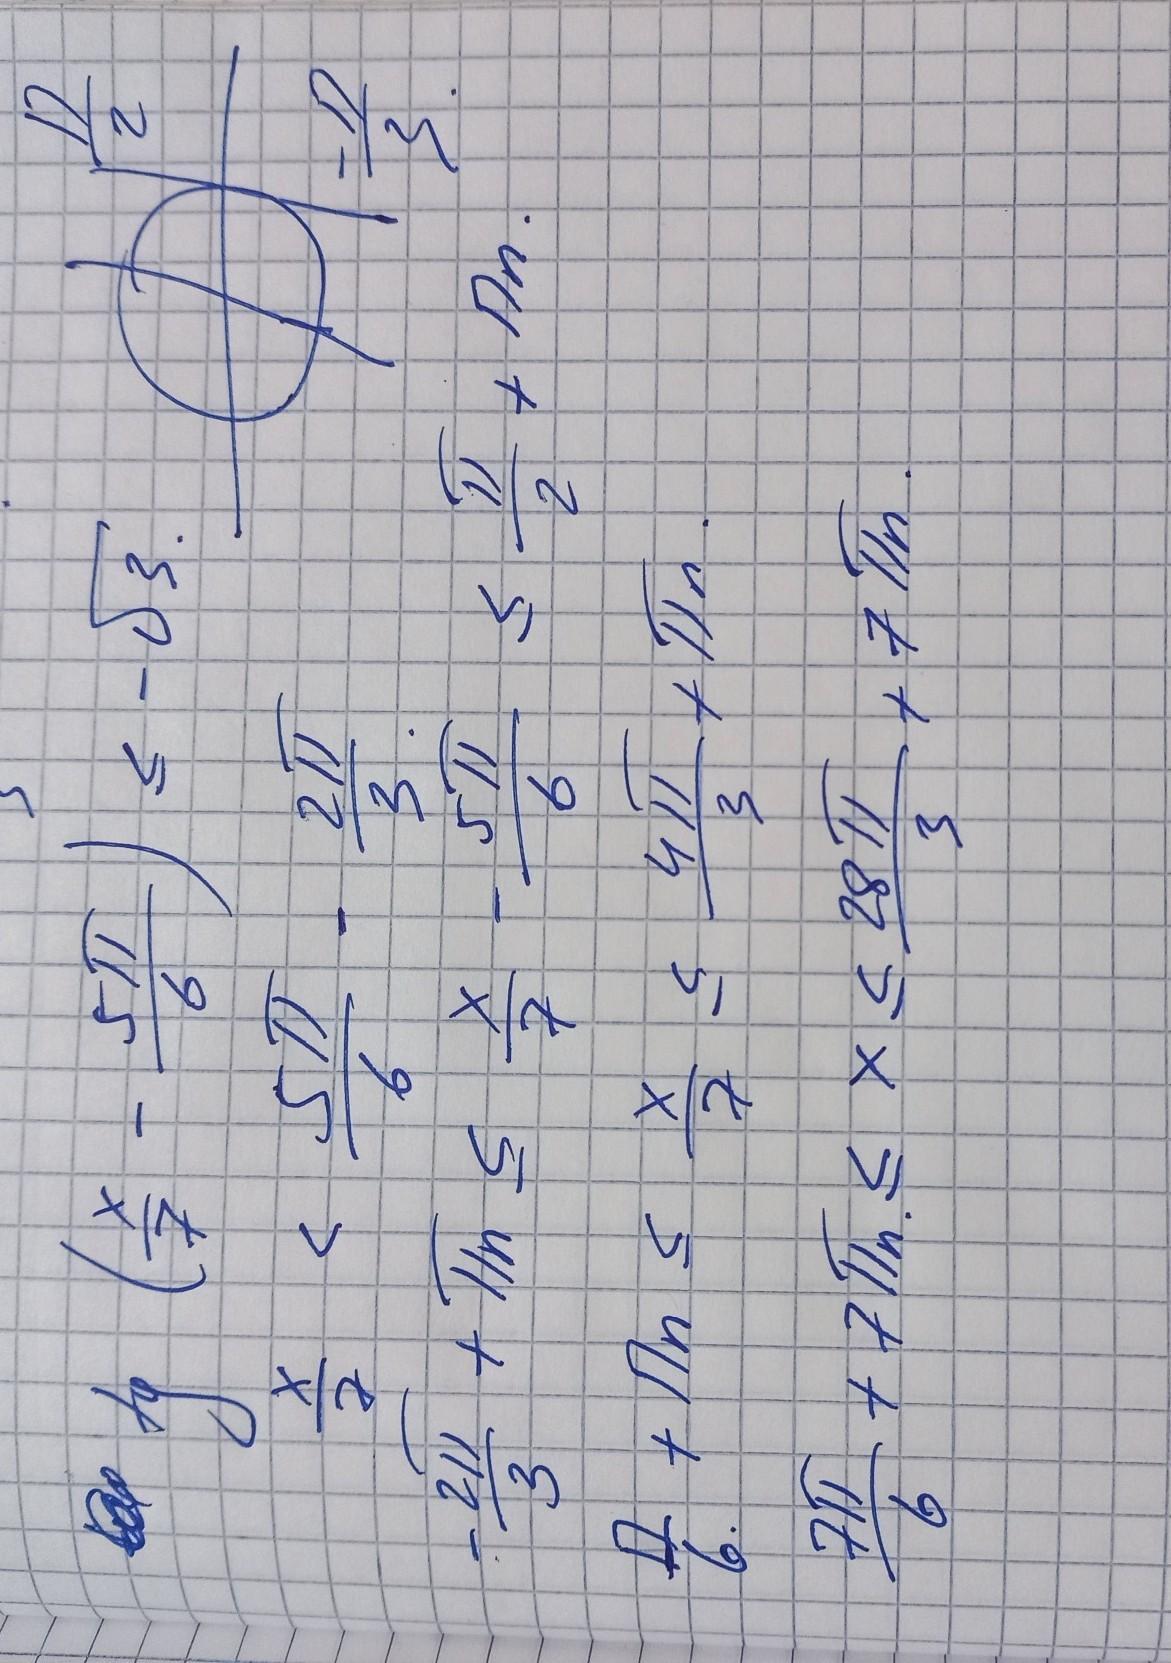 tg (x/7 - 5π/6) ≤ -√3.
π/2
-π/3.
x/7 < 5π/6 - 2π/3.
-2π/3 + πn ≤ x/7 - 5π/6 ≤ π/2 + πn.
π/6 + πn ≤ x/7 ≤ 4π/3 + πn.
7π/6 + 7πn ≤ x ≤ 28π/3 + 7πn.